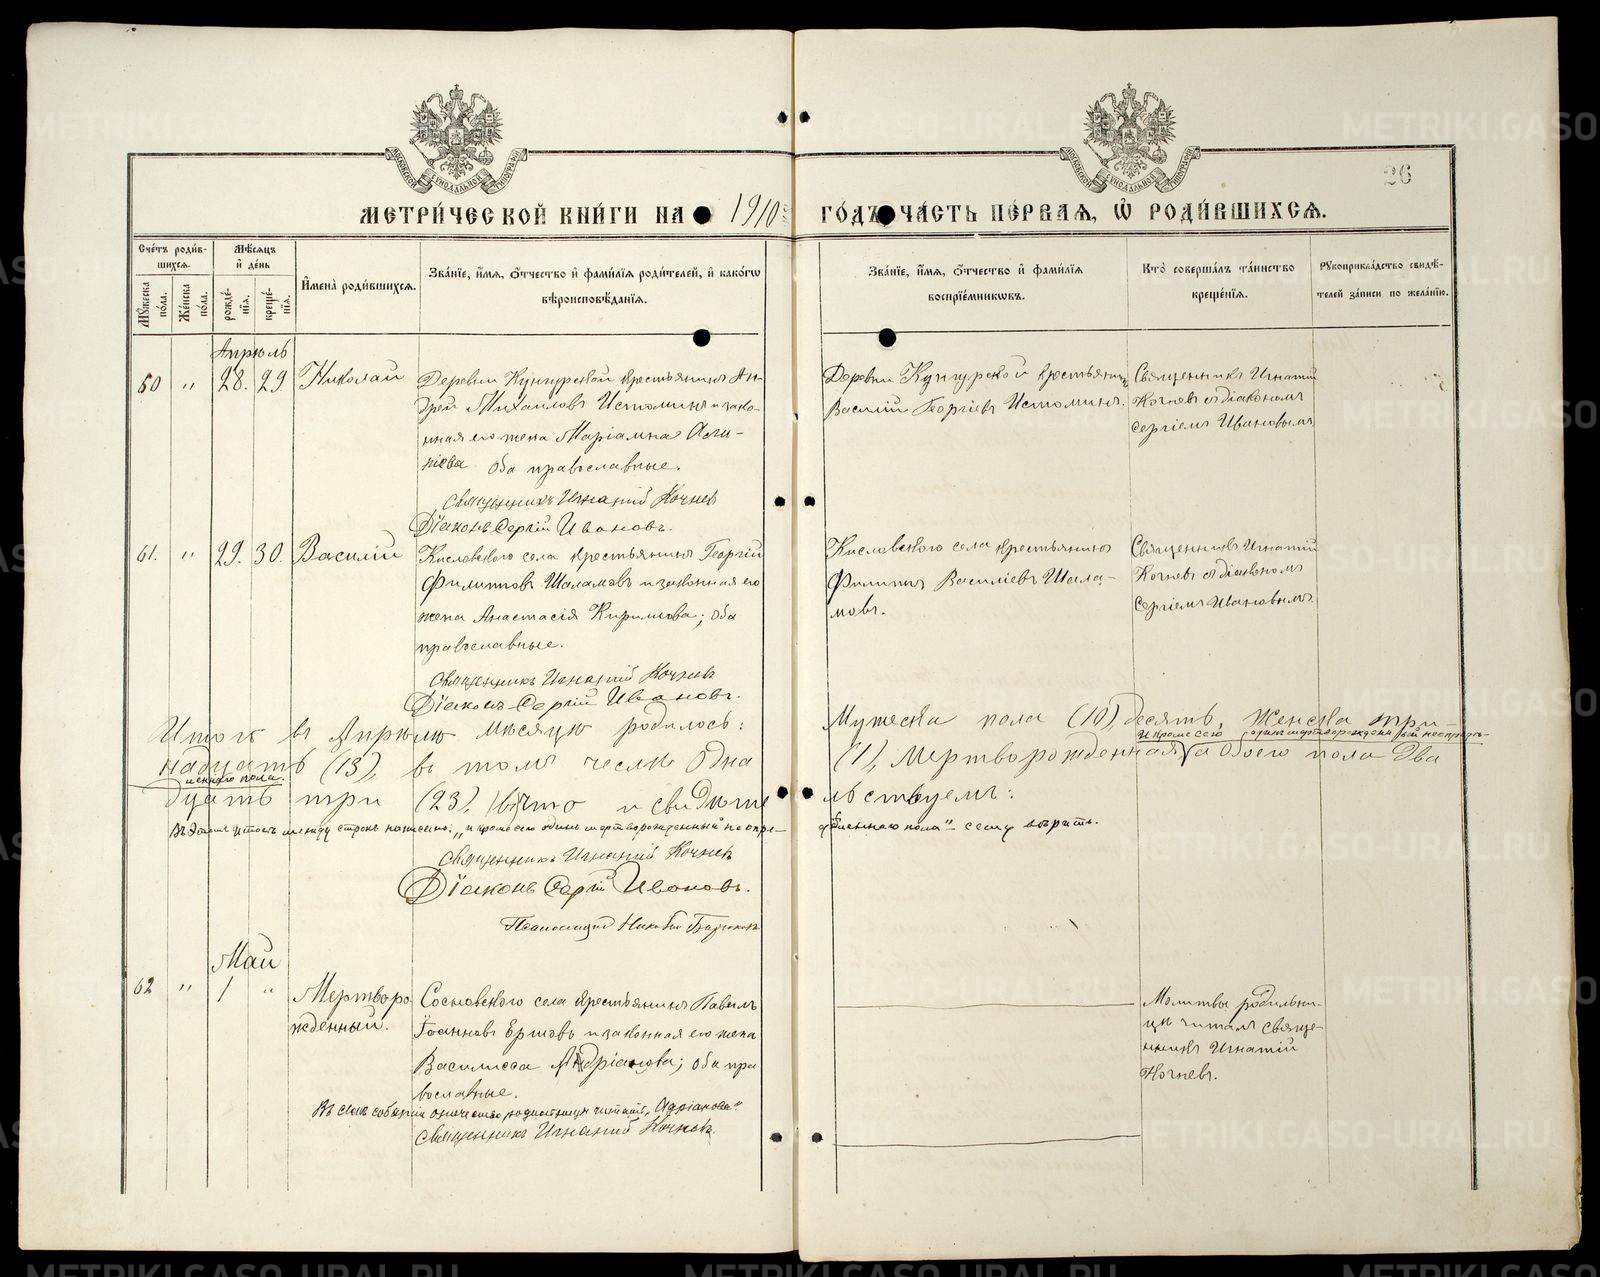 МОСКОВСКОЙ СѴНОДАЛЬНОЙ ТИПОГРАФІИ
МОСКОВСКОЙ СѴНОДАЛЬНОЙ ТИПОГРАФІИ
26
МЕТРИ́ЧЕСКОЙ КНИ́ГИ НА 1910 ГО́ДЪ ЧА́СТЬ ПЕ́РВАЯ, Ѡ҆ РОДИ́ВШИХСѦ.
Сче́тъ роди́в-
шихсѧ.
Мꙋ́жеска по́ла.
Же́нска по́ла.
Мѣ́сѧцъ
и҆ де́нь
рожде́-
нїѧ.
креще́-
нїѧ.
И҆мена̀ роди́вшихсѧ.
Зва́нїе, и҆́мѧ, ѻ҆́тчество и҆ фами́лїѧ роди́телей, и҆ како́гѡ
вѣроисповѣ́данїѧ.
Зва́нїе, и҆́мѧ, ѻ҆́тчество и҆ фами́лїѧ
воспрїе́мникѡвъ.
Кто̀ соверша́лъ та́инство
креще́нїѧ.
Рꙋкоприкла́дство свидѣ́-
телей за́писи по жела́нїю.
Апрѣль
60 " 28. 29 Николай
Деревни Кунгурской крестьянинъ Ан-
дрей Михаиловъ Истоминъ и зако-
нная его жена Маріамна
оба православные.
Священникъ Игнатій Кочнев
Діаконъ Сергій Ивановъ.
Деревни Кунгурской крестьянинъ
Василій Георгіевъ Истоминъ.
Священникъ Игнатій
Кочневъ съ діакономъ
Сергіемъ Ивановымъ
61. " 29. 30. Василій
Кисловского села крестьянинъ Георгій
Филиповъ Шаламовъ и законная его
жена Анастасія Кирилова; оба
православные.
Священникъ Игнатій Кочневъ
Діаконъ Сергій Ивановъ.
Кисловского села крестьянинъ
Филиппъ Василіевъ Шала-
мовъ.
Священникъ Игнатій
Кочневъ съ діакономъ
Сергіемъ Ивановымъ
Итого въ Апрѣлѣ мѣсяцѣ родилось: Мужеска пола (10), десять, Женска три-
и кромѣ сего одинъ мертворожденный неопредѣ-
надцать (13), въ томъ числѣ одна (1), Мертворожденная, а обоего пола два
леннаго пола.
дцать три (23), что и свидѣтельствуемъ:
Въ этомъ итогѣ между строкъ написано: „и кромѣ сего одинъ мертворожденный неопре-дѣленнаго пола" – сему вѣрить.
Священникъ Игнатій Кочневъ
Діаконъ Сергій Ивановъ.
Псаломщикъ
Май
62 " 1 " Мертворо
жденный.
Сосновского села крестьянинъ Павелъ
Іоанновъ Ершовъ и законная его жена
Василисса Андріанова; оба пра
вославные.
Въ семъ событіи отчество родительницы читать „Адріанова"
Священникъ Игнатій Кочневъ.
Молитвы родильни-
цѣ читалъ священ-
никъ Игнатій
Кочневъ.
METRIKI.GASO-URAL.RU